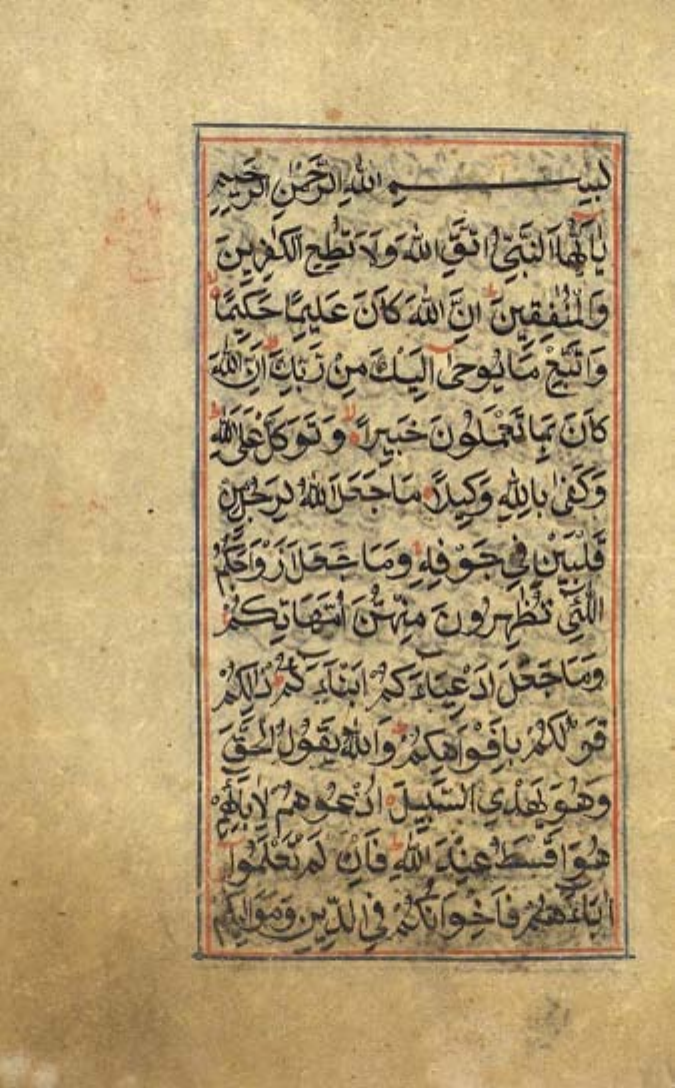 بسم الله الرحمن الرحيم
يٰاَيُّهَا النَّبِيُّ اتَّقِ اللهَ وَلَا تُطِعِ الْكٰفِرِينَ
وَالْمُنٰفِقِينَ اِنَّ اللهَ كَانَ عَلِيمًا حَكِيمًا
وَاتَّبِعْ مَا يُوحىٰ اِلَيْكَ مِنْ رَبِّكَ اِنَّ اللهَ
كَانَ بِمَا تَعْمَلُونَ خَبِيرًا وَتَوَكَّلْ عَلَى اللهِ
وَكَفىٰ بِاللهِ وَكِيلًا مَا جَعَلَ اللهُ لِرَجُلٍ مِنْ
قَلْبَيْنِ فِي جَوْفِهِ وَمَا جَعَلَ اَزْوَاجَكُمُ
اللّٰئِي تُظٰهِرُونَ مِنْهُنَّ اُمَّهَاتِكُمْ
وَمَا جَعَلَ اَدْعِيَاءَكُمْ اَبْنَاءَكُمْ ذٰلِكُمْ
قَوْلُكُمْ بِاَفْوَاهِكُمْ وَاللهُ يَقُولُ الْحَقَّ
وَهُوَ يَهْدِي السَّبِيلَ اُدْعُوهُمْ لِاٰبَائِهِمْ
هُوَ اَقْسَطُ عِنْدَ اللهِ فَاِنْ لَمْ تَعْلَمُوا
اٰبَاءَهُمْ فَاِخْوَانُكُمْ فِي الدِّينِ وَمَوَالِيكُمْ